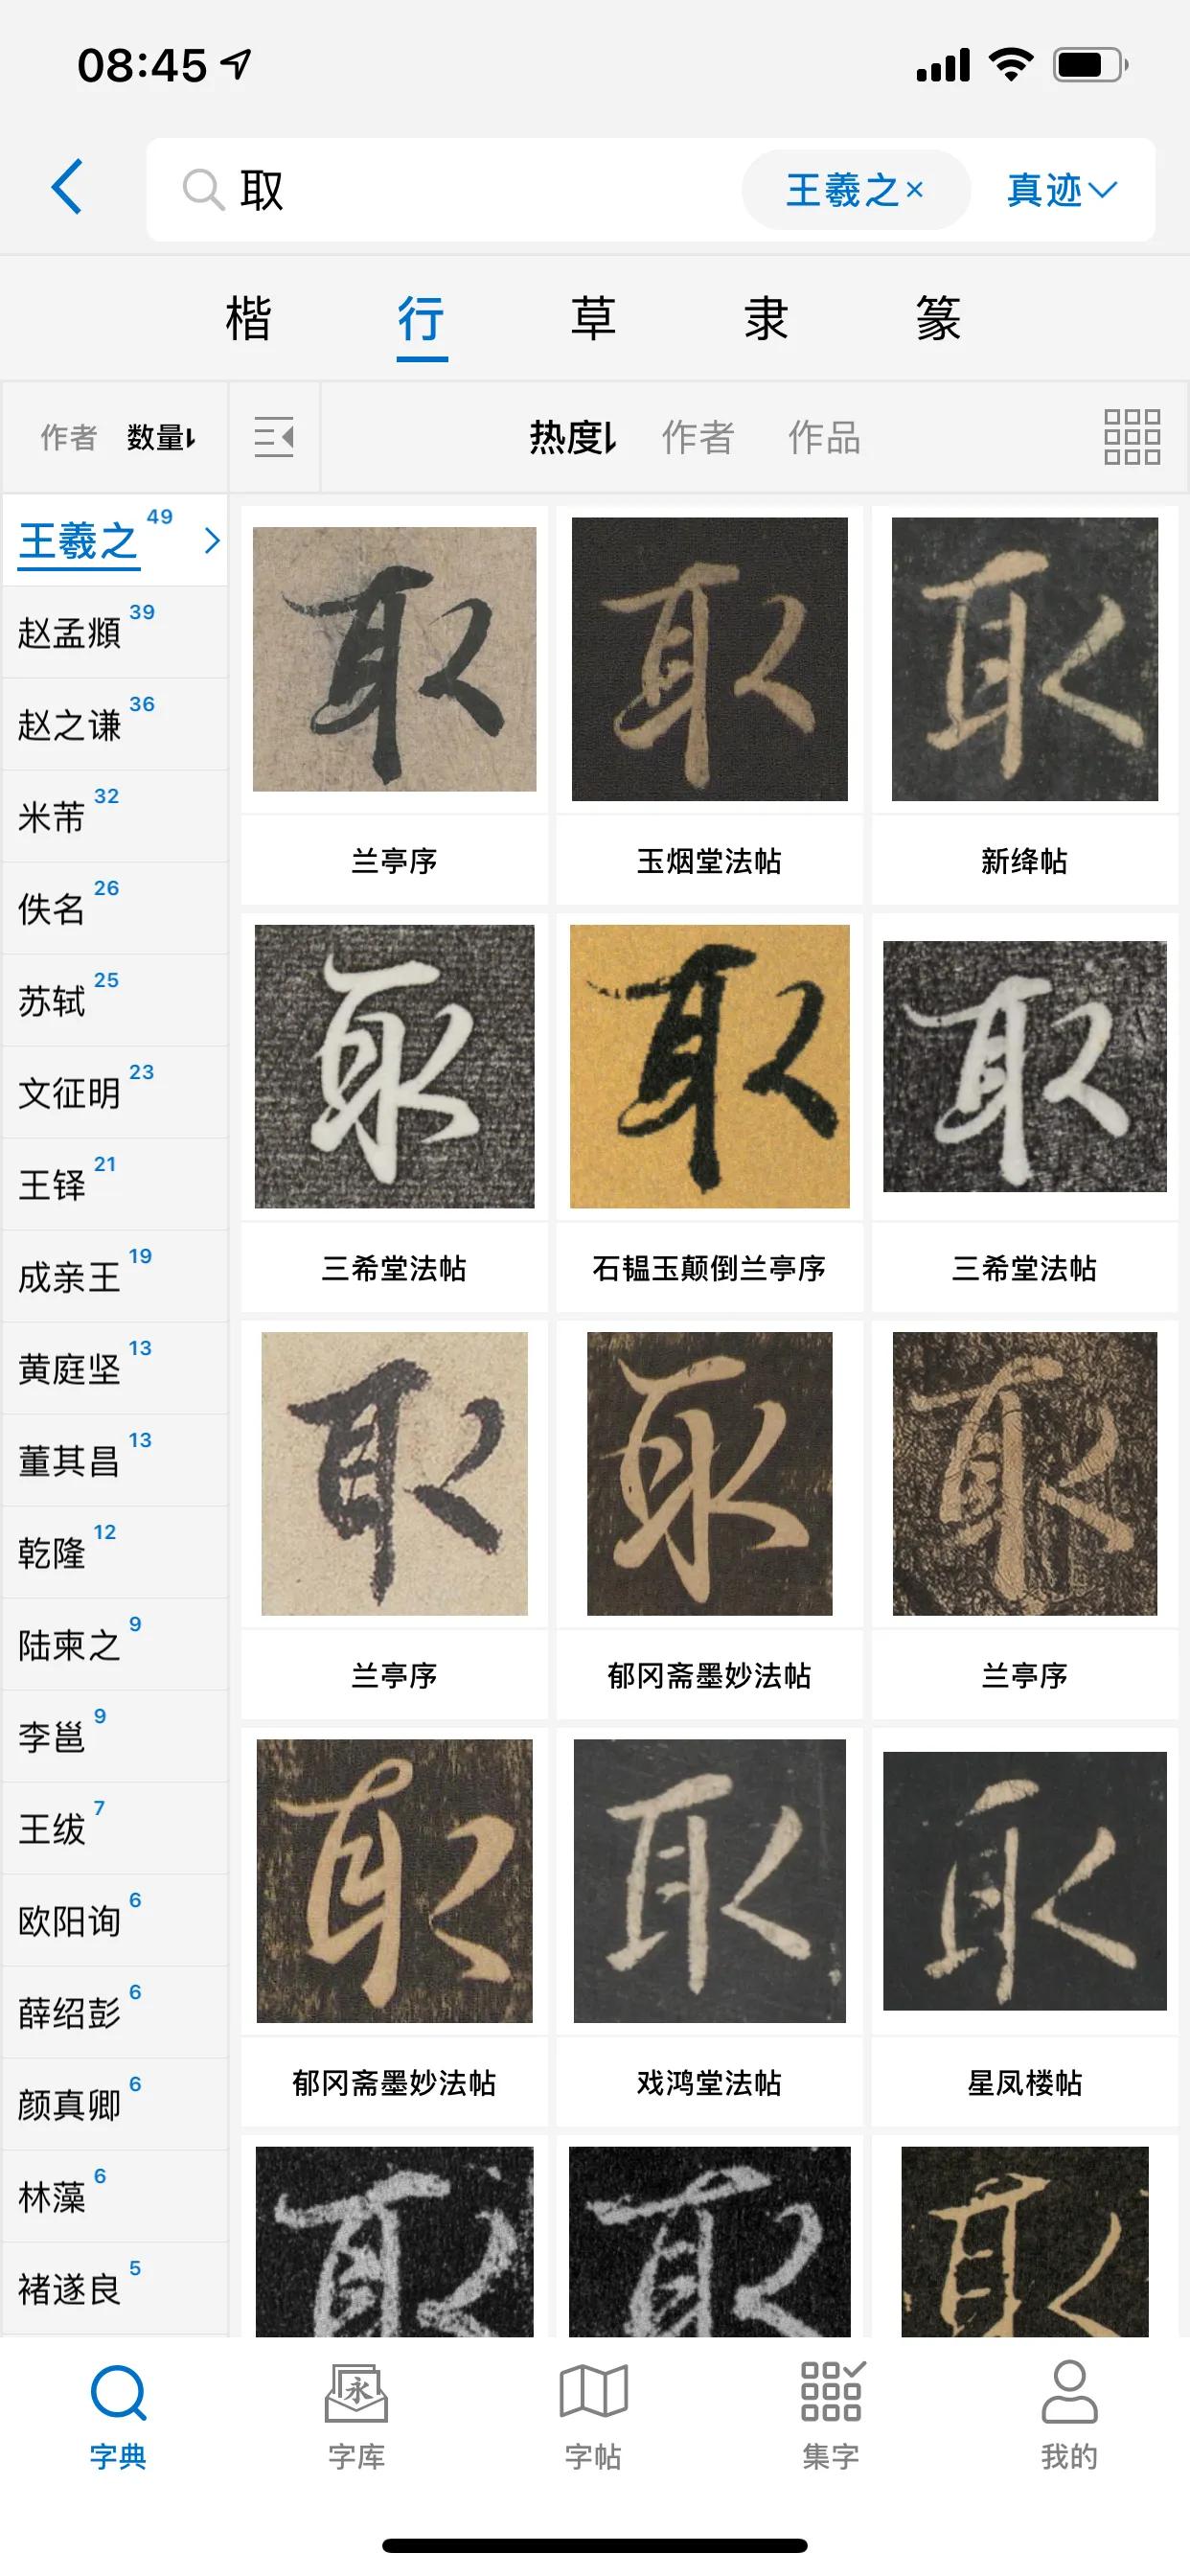 08:45
取 王羲之× 真迹
楷 行 草 隶 篆
作者 数量 热度 作者 作品
王羲之 49
赵孟頫 39
赵之谦 36
米芾 32
佚名 26
苏轼 25
文征明 23
王铎 21
成亲王 19
黄庭坚 13
董其昌 13
乾隆 12
陆柬之 9
李邕 9
王绂 7
欧阳询 6
薛绍彭 6
颜真卿 6
林藻 6
褚遂良 5
取 取 取
兰亭序 玉烟堂法帖 新绛帖
取 取 取
三希堂法帖 石韫玉颠倒兰亭序 三希堂法帖
取 取 取
兰亭序 郁冈斋墨妙法帖 兰亭序
取 取 取
郁冈斋墨妙法帖 戏鸿堂法帖 星凤楼帖
取 取 取
永
字典 字库 字帖 集字 我的